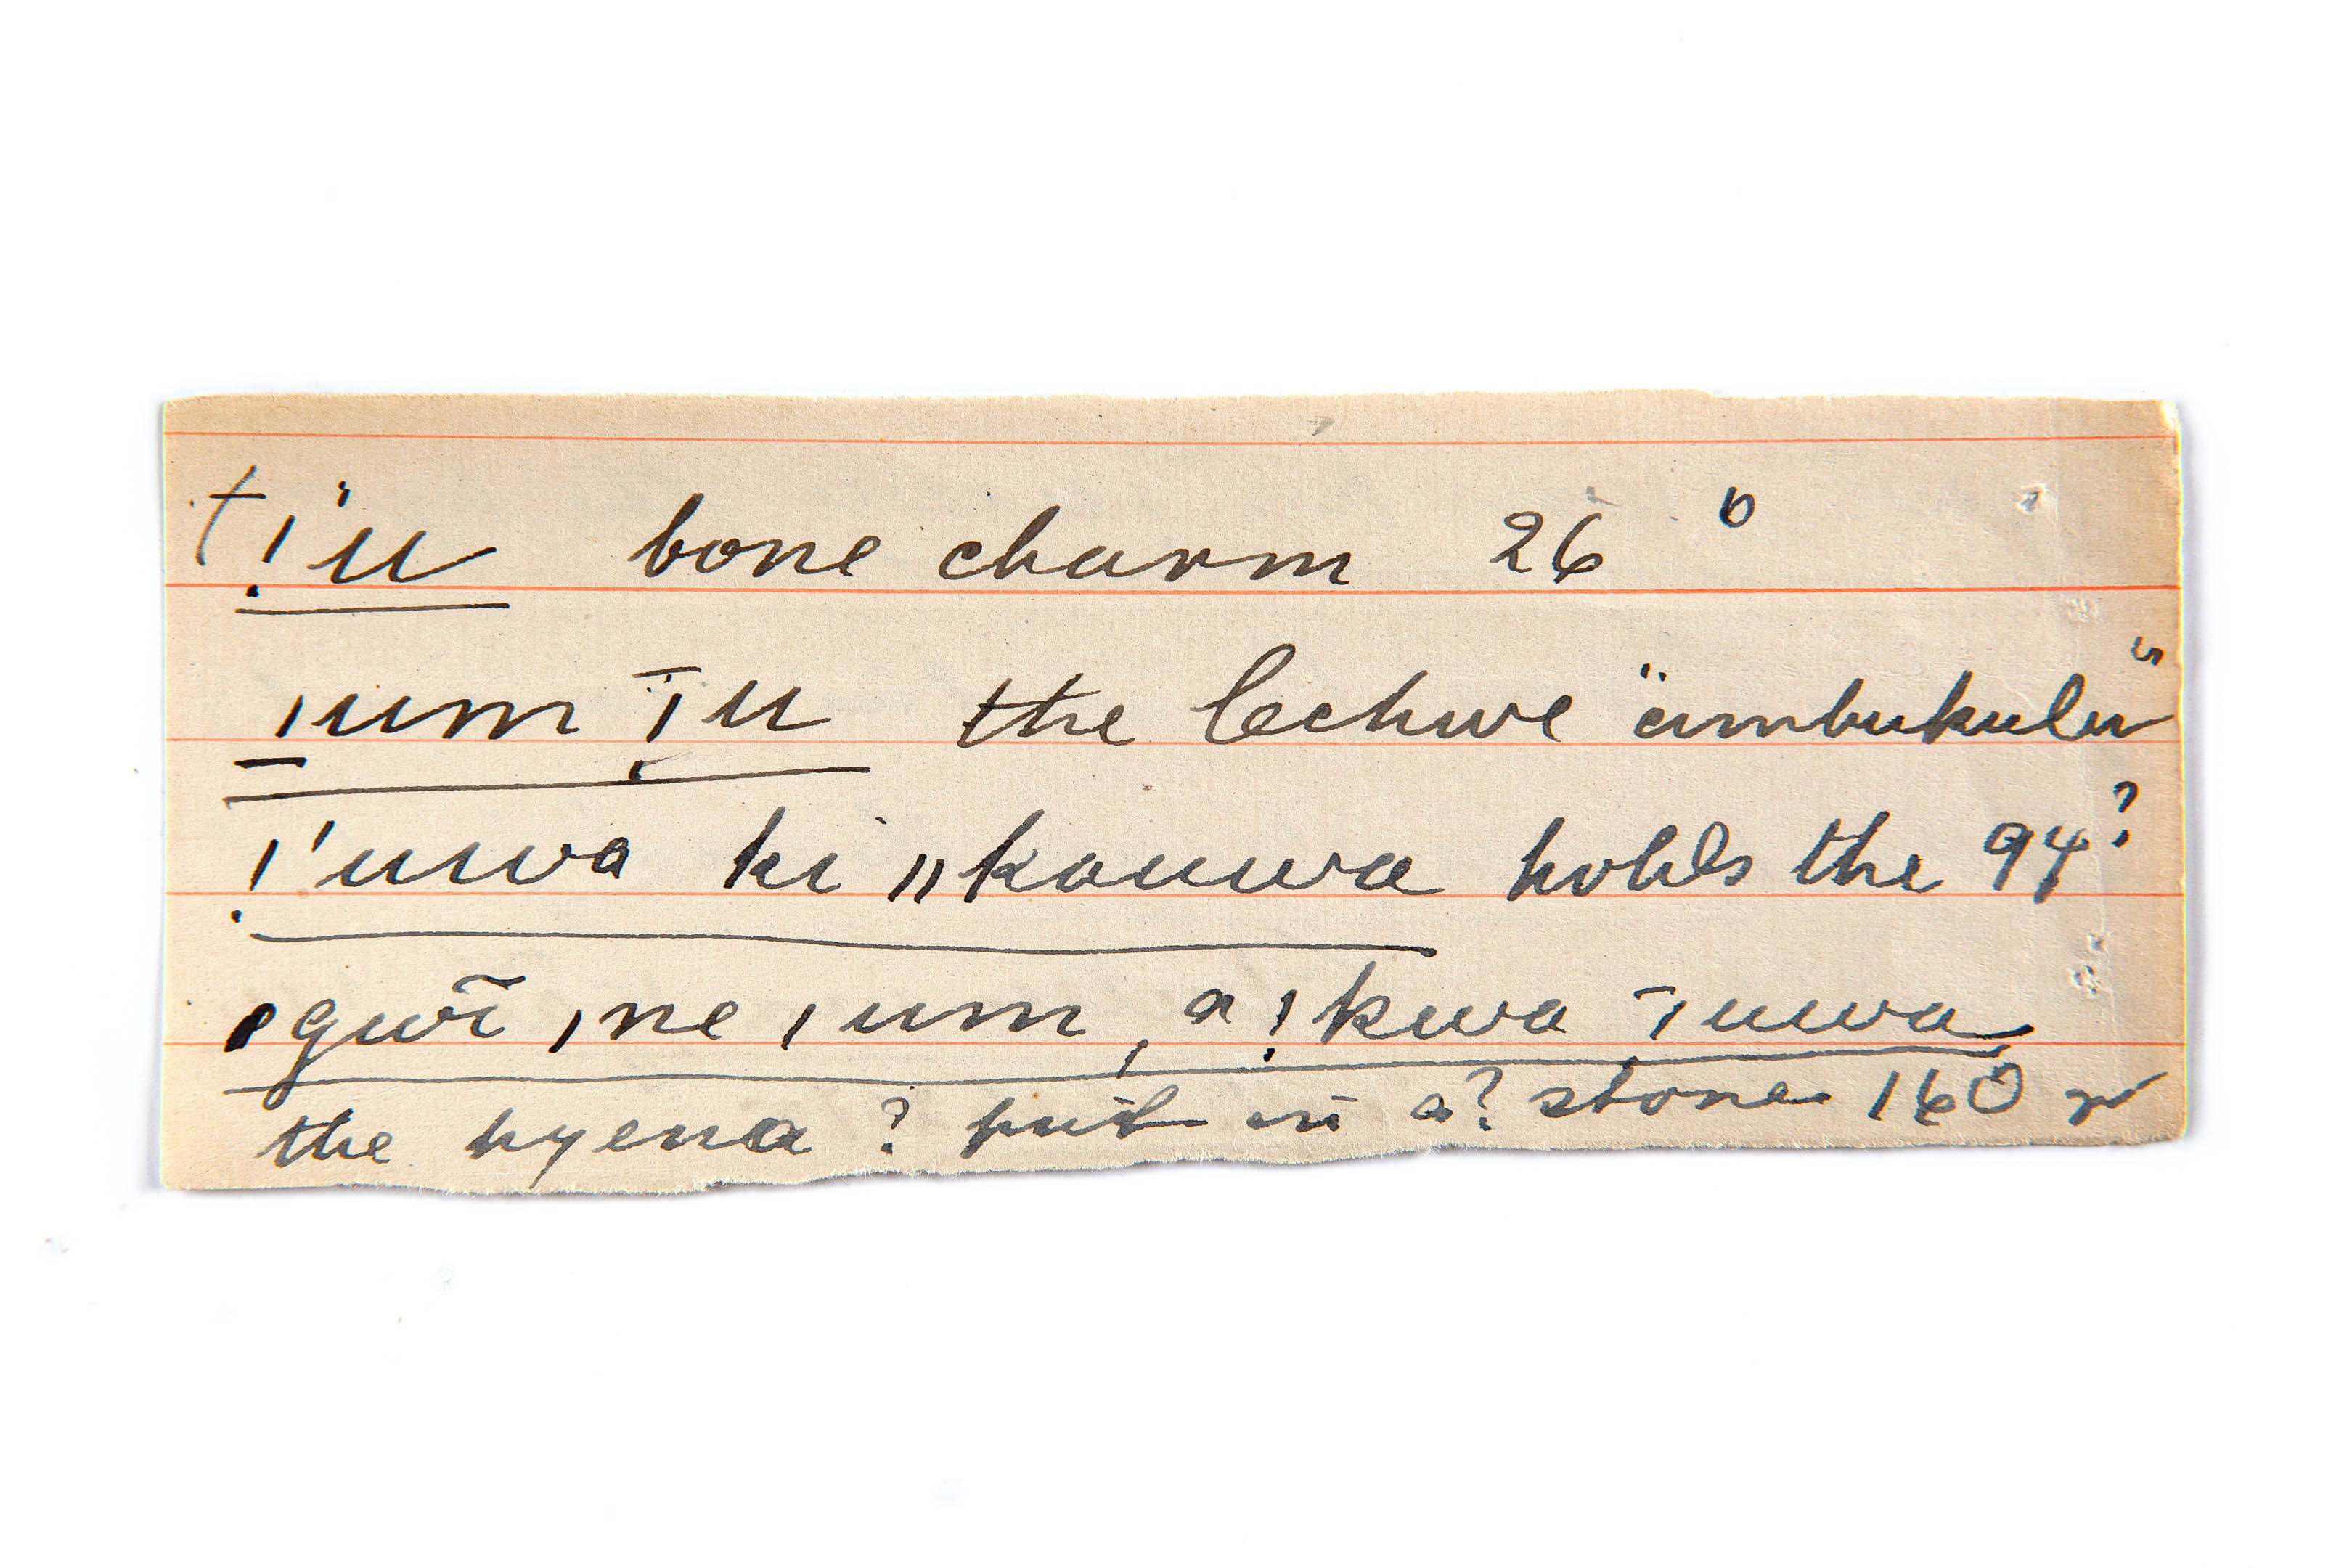 ǃ'u bone charm 26 b
ǀum ǀ̄u the lechwe "ambukulu"
ǃ'uwa ki ǁkauwa holds the 94?
gwĩ ǀne ǀum, a ǃkwa ǀ̄uwa
the hyena ? put in a? stone 160